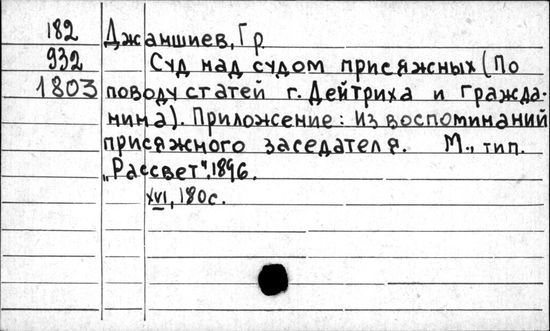 182 Джаншиев, Гр
932 Суд над судом присяжных (По
1803 поводу статей г. Дейтриха и Гражда-
нина). Приложение: Из воспоминаний
присяжного заседателя. М., тип.
„Рассвет", 1896.
XVI, 180 с.